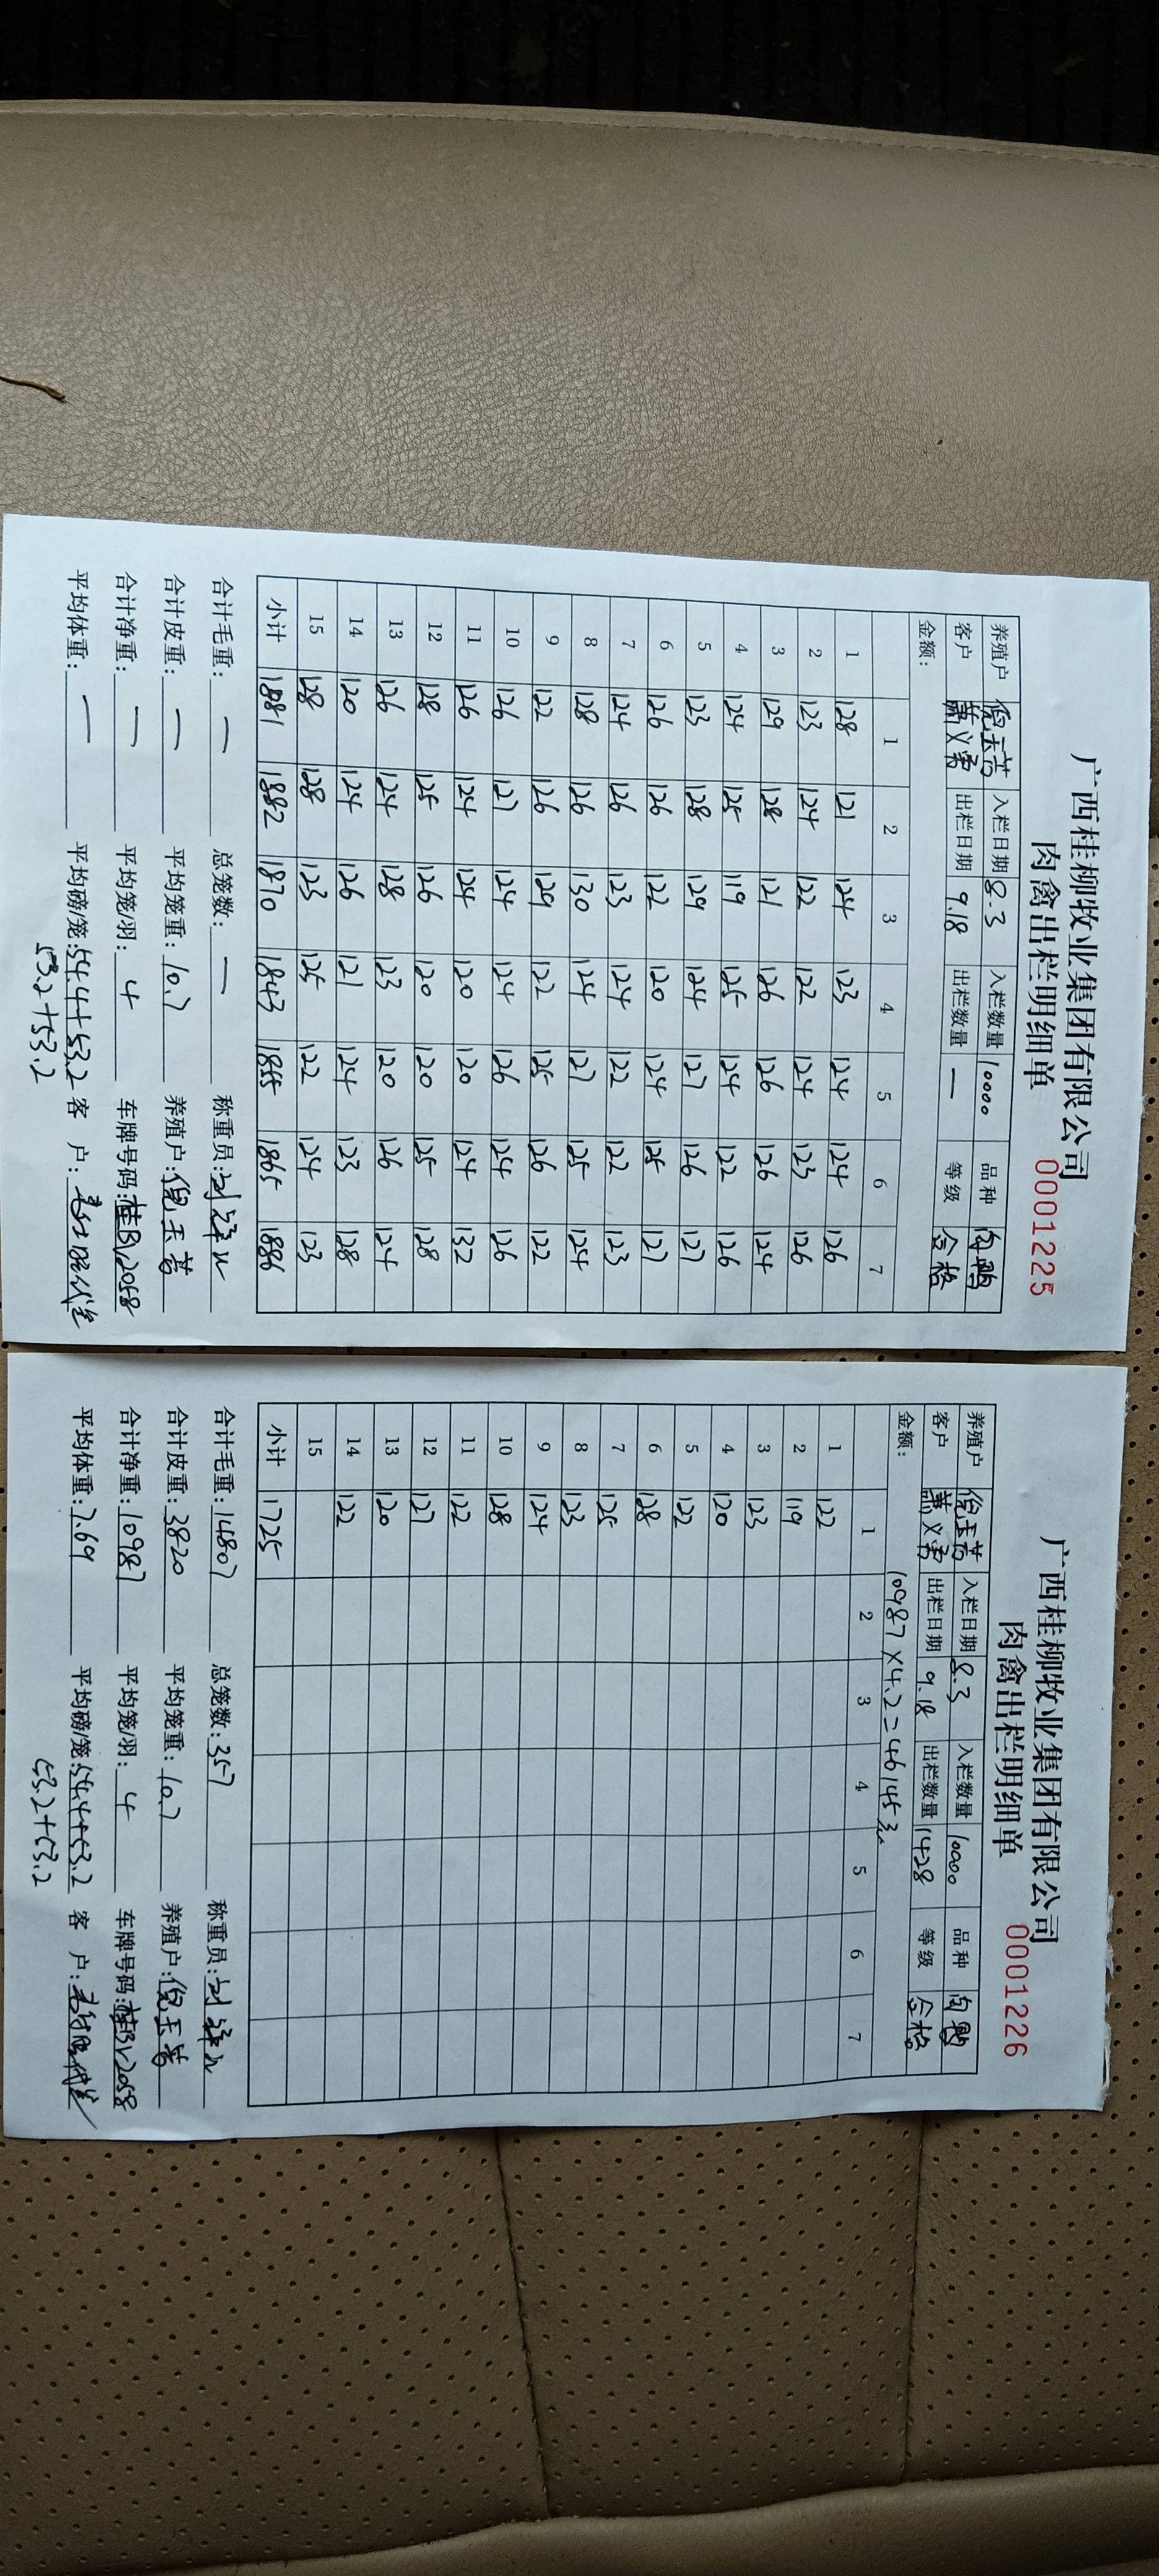 广西桂柳牧业集团有限公司
肉禽出栏明细单 0001225
养殖户 倪玉菁 入栏日期 8.3 入栏数量 10000 品种 肉鸭
客户 萧义富 出栏日期 9.18 出栏数量 一 等级 合格
金额：
1 2 3 4 5 6 7
1 128 121 124 123 124 124 126
2 123 124 122 122 124 123 126
3 129 128 121 126 126 126 124
4 124 125 119 125 124 122 126
5 123 128 129 124 127 126 127
6 126 126 122 120 124 125 127
7 124 126 123 124 122 122 123
8 128 126 130 124 127 125 124
9 122 126 129 122 125 126 122
10 126 127 124 124 126 124 126
11 126 124 124 120 120 124 132
12 128 125 126 120 120 125 128
13 126 124 128 123 120 126 124
14 120 124 126 121 124 123 128
15 128 128 123 125 122 124 123
小计 1881 1882 1870 1843 1855 1865 1886
合计毛重：一 总笼数：一 称重员：
合计皮重：一 平均笼重：10.7 养殖户：倪玉菁
合计净重：一 平均笼/羽：4 车牌号码：桂BV2058
平均体重：一 平均磅/笼：54.4+53.2 客 户：
53.2+53.2
广西桂柳牧业集团有限公司
肉禽出栏明细单 0001226
养殖户 倪玉菁 入栏日期 8.3 入栏数量 10000 品种 肉鸭
客户 萧义富 出栏日期 9.18 出栏数量 1428 等级 合格
金额： 10987×4.2=46145元
1 2 3 4 5 6 7
1 122
2 119
3 123
4 120
5 122
6 128
7 125
8 123
9 124
10 128
11 122
12 127
13 120
14 122
15
小计 1725
合计毛重：14807 总笼数：357 称重员：
合计皮重：3820 平均笼重：10.7 养殖户：倪玉菁
合计净重：10987 平均笼/羽：4 车牌号码：桂BV2058
平均体重：7.69 平均磅/笼：54.4+53.2 客 户：
53.2+53.2